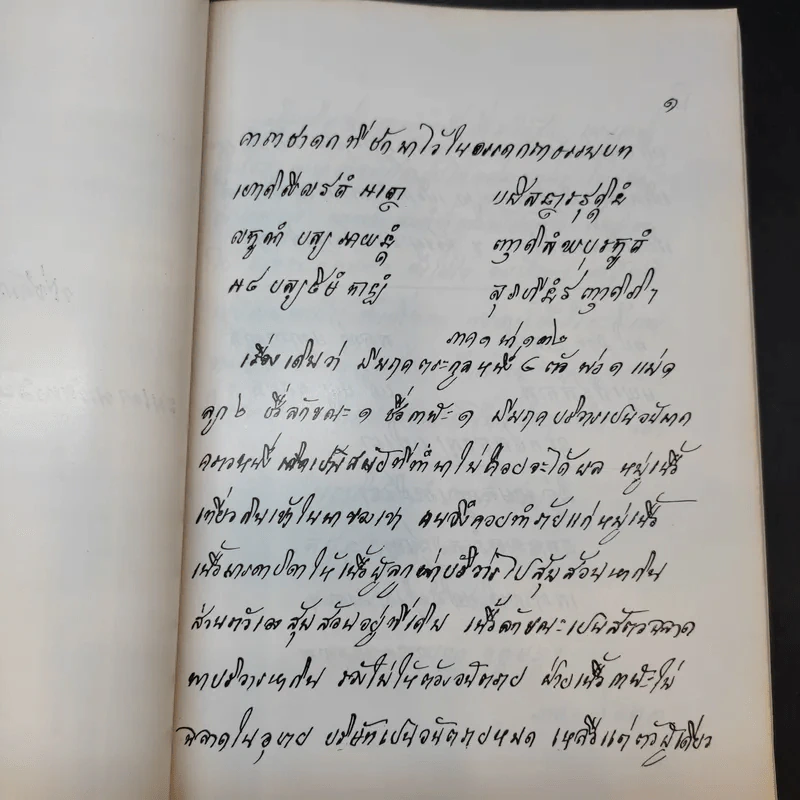 ๑
คาถาชาดก ที่ชักมาไว้ในอรรถกถาธรรมบท
โหติ สีลวตํ อตฺโถ ปฏิสนฺถารวุตฺตินํ
ลกฺขณํ ปสฺส อายนฺตํ ญาติสํฆปุรกฺขตํ
อถ ปสฺสสิมํ กาฬํ สุวิหีนํว ญาติภิ ฯ
ภาค ๑ น่า ๑๓๒
เรื่องเดิมว่า มีมฤคตระกูลหนึ่ง ๔ ตัว พ่อ ๑ แม่ ๑
ลูก ๒ ชื่อลักขณะ ๑ ชื่อกาฬะ ๑ มีมฤคบริวารเปนอันมาก
คราวหนึ่ง เปนสมัยที่ทำนาไม่ค่อยจะได้ผล หมู่เนื้อ
เที่ยวกินเข้าในนาของเขา คนจึงคอยทำร้ายแก่หมู่เนื้อ
เนื้อมารดาบิดาให้เนื้อผู้ลูกพาบริวารไปสุ้มซ่อนหากิน
ส่วนตัวเองสุ้มซ่อนอยู่ที่เดิม เนื้อลักขณะเปนสัตวฉลาด
พาบริวารหากิน ไม่ให้อันตราย ฝ่ายเนื้อกาฬะไม่
ฉลาดในอุบาย บริษัทเปนอันตรายหมด เหลือแต่ตัวผู้เดียว